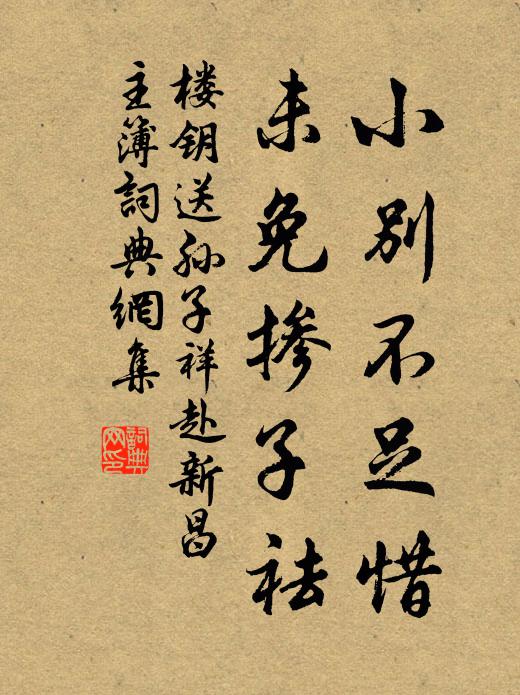 小别不足惜
未免掺子祛
楼钥送孙子祥赴新昌
主簿詞典網集
詞典
网印